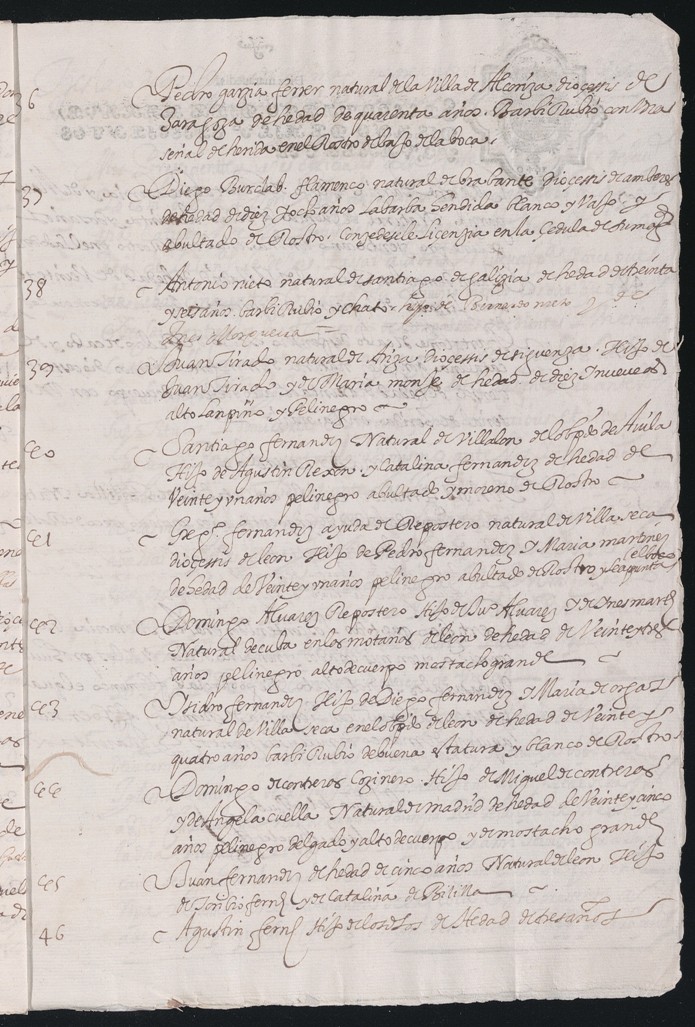 36 Pedro garzia ferrer natural de la Villa de Alcañiza diocessis de
Zaragoza de hedad de quarenta años. Barbi Rubio con Una
señal de herida en el Rostro debajo de la boca.
37 Diego Burclab. flamenco natural de brabante Diocessis de amberes
de hedad de diez y ocho años La barba hendida blanco y
abultado de Rostro. Conzedesele licenzia en la Cedula de
38 Antonio nieto natural de santiago de galizia de hedad de treinta
y seis años. barbi Rubio y chato hijo de Bernardo nieto y de
Ines
39 Juan Tirado natural de Ariza Diocessis de siguenza. Hijo de
Juan Tirado y de Maria monje de hedad de diez y nueve años
alto Lanpiño y Pelinegro
40 Santiago fernandez Natural de Villalon del obpdo de Avila
Hijo de Agustin Rexon y Catalina fernandez de hedad de
Veinte y un años pelinegro abultado y moreno de Rostro
41 Gregº fernandez ayuda de Repostero natural de Villa seca
diocessis de leon Hijo de Pedro fernandez y Maria martinez
de hedad de Veinte y un años pelinegro abultado de Rostro
42 Domingo Alvarez Repostero Hijo de Alvarez y de Ynes martinez
Natural de cuba en las motañas de leon de hedad de Veinte y tres
años pelinegro alto de cuerpo mostacho grande
43 Ysidro fernandez Hijo de Diego fernandez y Maria de orgas
natural de Villa seca en el obpdo de leon de hedad de Veinte y
quatro años barbi Rubio de buena estatura y blanco de Rostro
44 Domingo de contreras Cozinero. Hijo de Miguel de contreras
y de Angela cuella Natural de madrid de hedad de Veinte y cinco
años pelinegro delgado y alto de cuerpo y de mostacho grande
45 Juan fernandez de hedad de cinco años Natural de leon Hijo
de Toribio fernz y de Catalina de Bililla
46 Agustin fernz Hijo de los dhos de Hedad de tres años